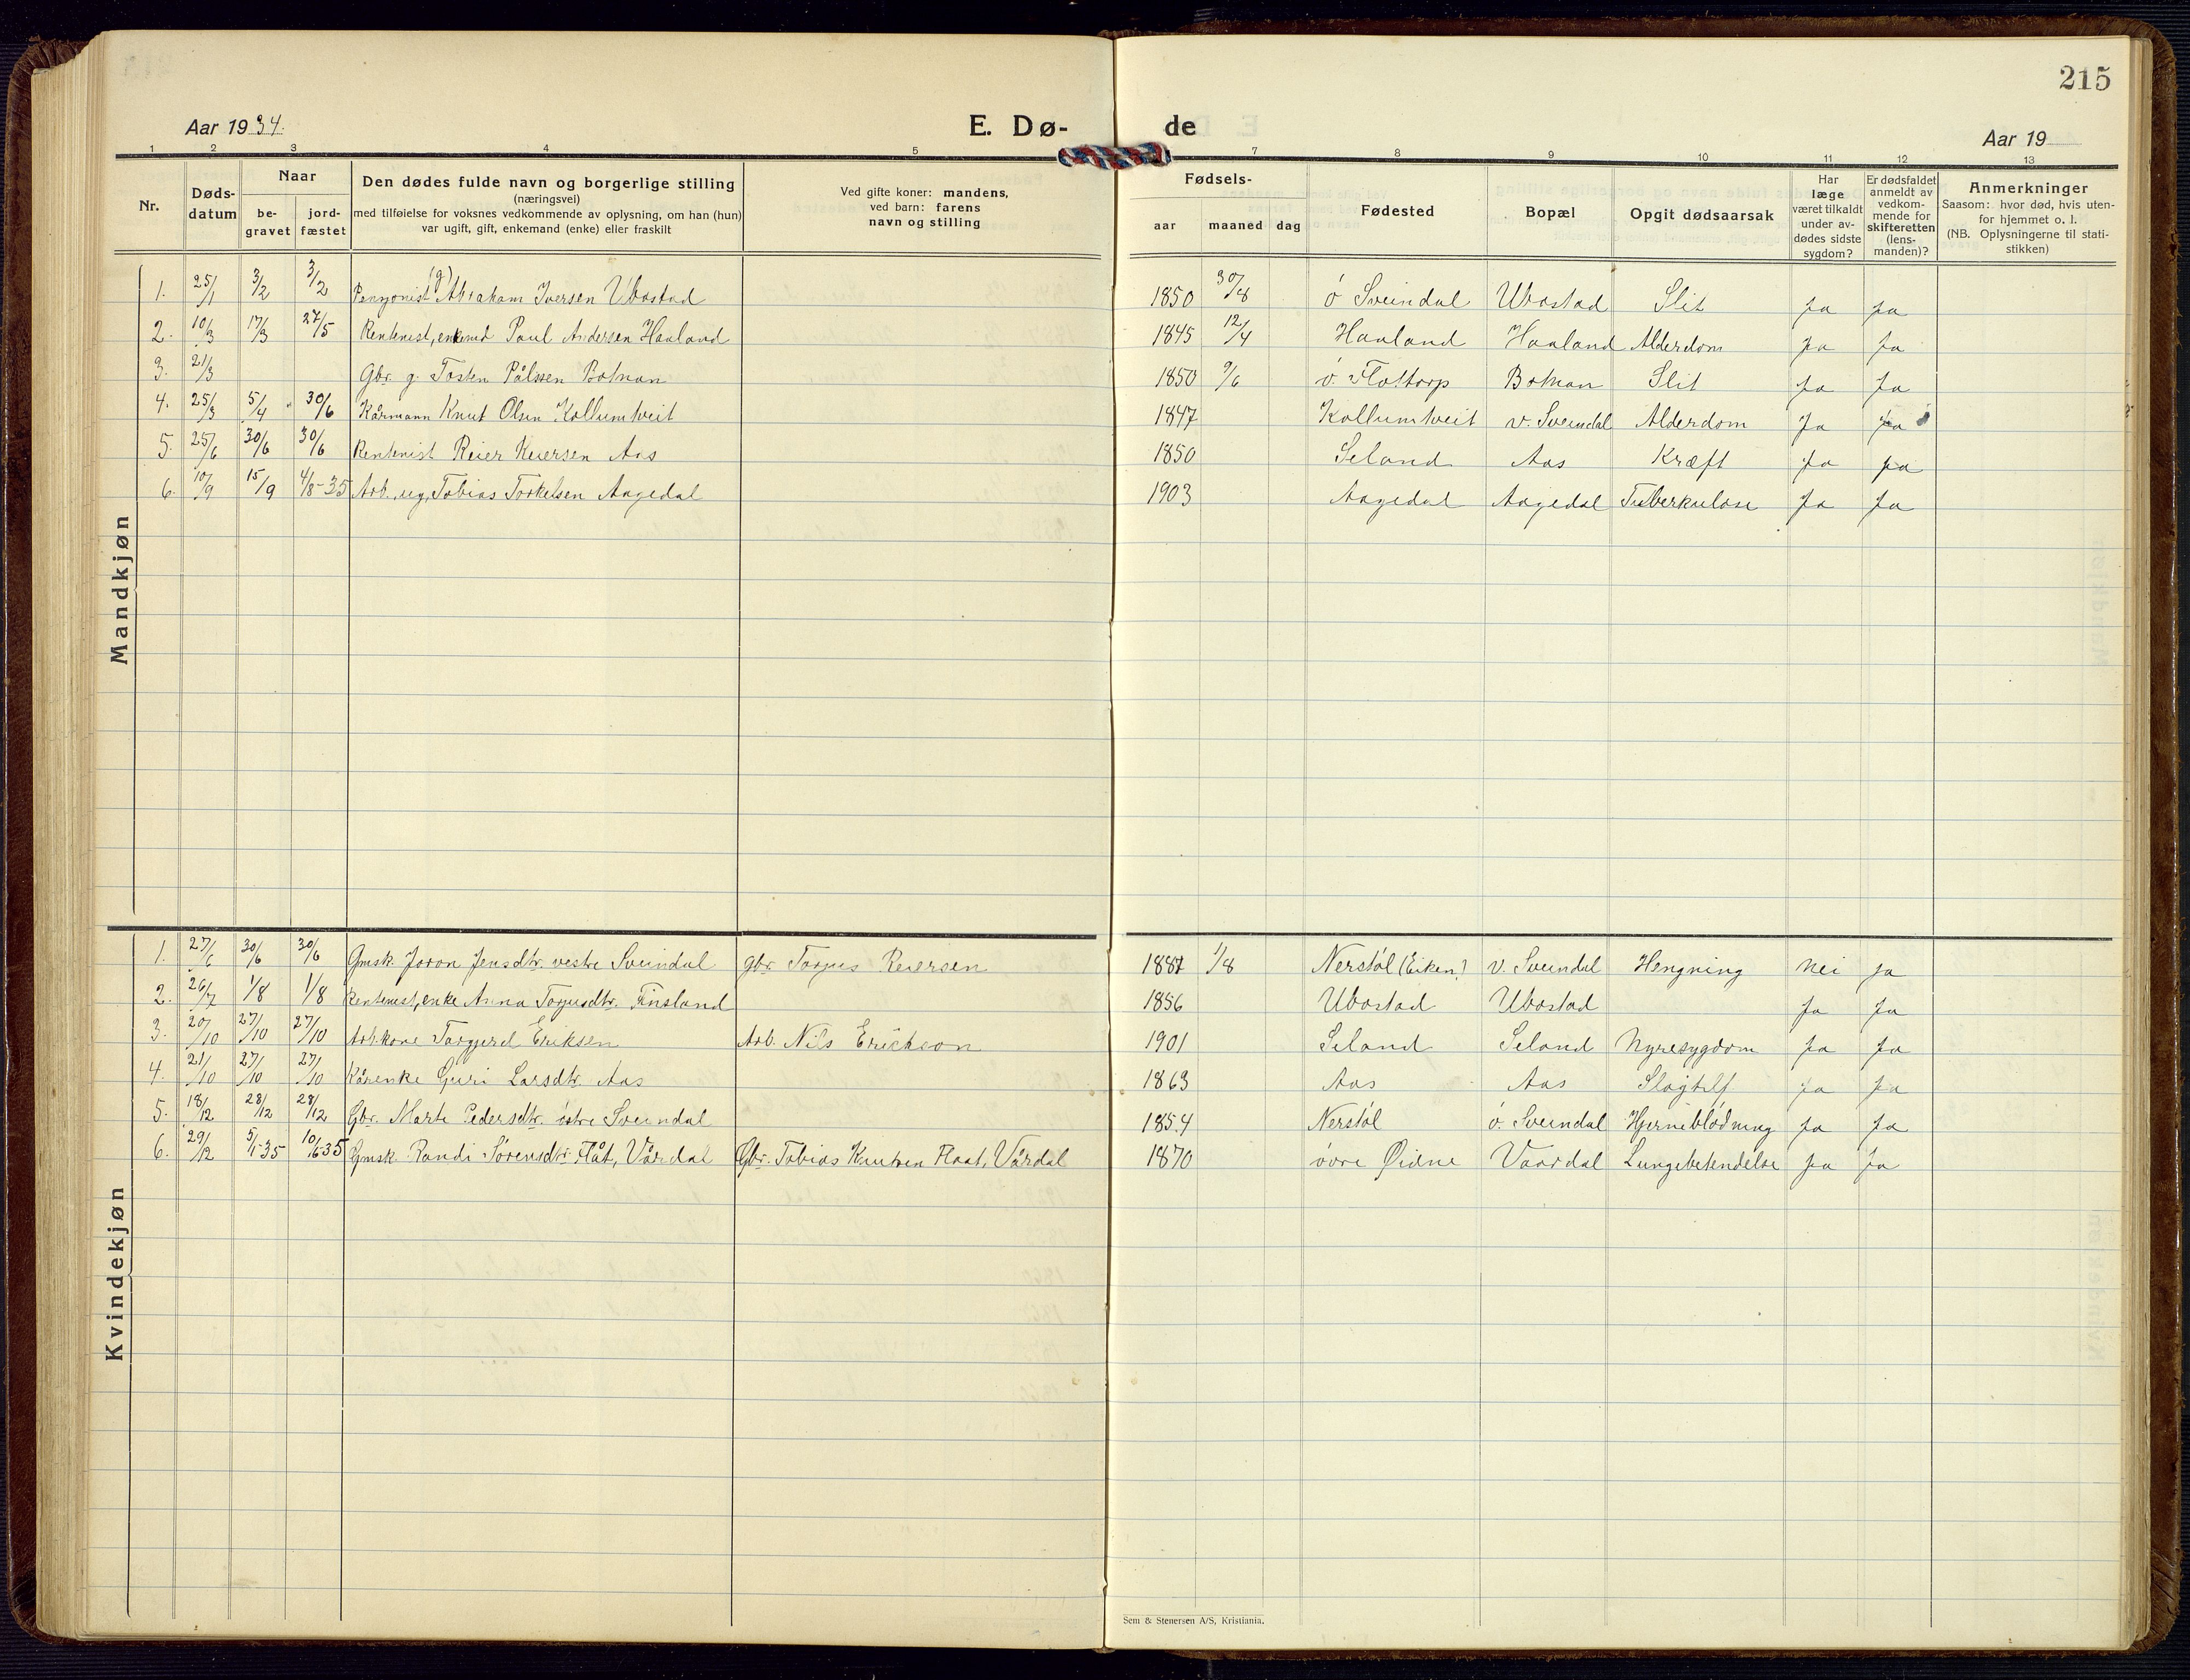 215
Aar 1934. E. Dø- de Aar 19
1 2 3 4 5 7 8 9 10 11 12 13
Nr.
Døds-datum
Naar
be-gravet
jord-fæstet
Den dødes fulde navn og borgerlige stilling
(næringsvei)
med tilføielse for voksnes vedkommende av oplysning, om han (hun)
var ugift, gift, enkemand (enke) eller fraskilt
Ved gifte koner: mandens,
ved barn: farens
navn og stilling
Fødsels-
aar maaned dag
Fødested
Bopæl
Opgit dødsaarsak
Har
læge
været tilkaldt
under av-
dødes sidste
sygdom?
Er dødsfaldet
anmeldt av
vedkom-
mende for
skifteretten
(lens-
manden)?
Anmerkninger
Saasom: hvor død, hvis uten-
for hjemmet o. l.
(NB. Oplysningerne til stati-
stikken)
Mandkjøn
1. 25/1 3/2 3/2 Pensjonist (g) Abraham Iversen Ubostad 1850 30/8 ö Sveindal Ubostad Slit ja ja
2. 10/3 17/3 27/5 Rentenist, enkemd Paul Andersen Haaland 1845 12/4 Haaland Haaland Alderdom ja ja
3. 21/3 Gbr. g. Tosten Pålssen Botnan 1850 9/6 ö. Flottorp Botnan Slit ja ja
4. 25/3 5/4 30/6 Kårmann Knut Olsen Kollumtveit 1847 Kollumtveit v. Sveindal Alderdom Ja ja
5. 25/6 30/6 30/6 Rentenist Reier Reiersen Aas 1850 Seland Aas Kræft ja ja
6. 10/9 15/9 4/8-35 Arb., ug, Tobias Torkelsen Aagedal 1903 Aagedal Aagedal Tuberkulose Ja Ja
Kvindekjøn
1. 27/6 30/6 30/6 Gmsk. Joron Jensdtr. vestre Sveindal gbr. Torjus Reiersen 1887 1/8 Nerstöl (Eiken) v. Sveindal Hengning Nei ja
2. 26/7 1/8 1/8 Rentenist, enke Anna Torjusdtr. Finsland 1856 Ubostad Ubostad Ja Ja
3. 20/10 27/10 27/10 Arb.kone Torgjerd Eriksen Arb. Nils Erickson 1901 Seland Seland Nyresygdom ja ja
4. 21/10 27/10 27/10 Kårenke Guri Larsdtr. Aas 1863 Aas Aas ja ja
5. 18/12 28/12 28/12 Gbr. Marte Pedersdtr. östre Sveindal 1854 Nerstöl ö. Sveindal Hjerneblödning ja ja
6. 29/12 5/1-35 10/6-35 Gmsk. Randi Sörensdtr. Flåt, Vårdal Gbr. Tobias Knutsen Flaat, Vårdal 1870 övre Øidne Vaardal Lungebetendelse ja ja
Sem & Stenersen A/S, Kristiania.